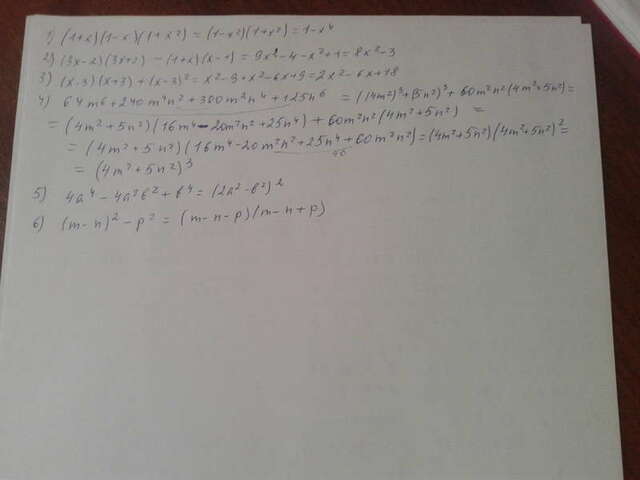 1) (1+x)(1-x)(1+x²) = (1-x²)(1+x²) = 1-x⁴
2) (3x-2)(3x+2) - (1+x)(x-1) = 9x² - 4 - x² + 1 = 8x² - 3
3) (x-3)(x+3) + (x-3)² = x² - 9 + x² - 6x + 9 = 2x² - 6x + 18
4) 64m⁶ + 240m⁴n² + 300m²n⁴ + 125n⁶ = ((4m²)³ + (5n²)³ + 60m²n²(4m²+5n²) =
= (4m² + 5n²)(16m⁴ - 20m²n² + 25n⁴) + 60m²n²(4m² + 5n²) =
= (4m² + 5n²)(16m⁴ - 20m²n² + 25n⁴ + 60m²n²) = (4m² + 5n²)(4m² + 5n²)² =
= (4m² + 5n²)³
5) 4a⁴ - 4a²b² + b⁴ = (2a² - b²)²
6) (m-n)² - p² = (m-n-p)(m-n+p)